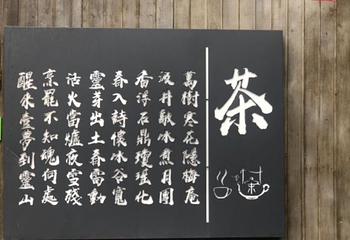 茶
萬樹寒花隱梅庵
汲井敲冰煮月團
香浮石鼎瓊瑤化
春入詩懷冰谷寬
靈芽出土春雷動
活火當爐夜雪殘
烹罷不知魂何處
醒來惟夢到靈山